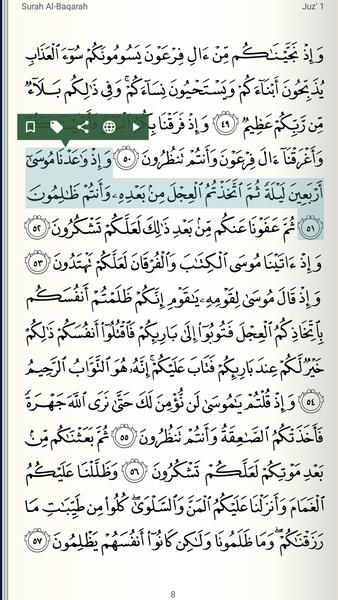 Surah Al-Baqarah Juz' 1
وَإِذْ نَجَّيْنَـٰكُم مِّنْ ءَالِ فِرْعَوْنَ يَسُومُونَكُمْ سُوٓءَ ٱلْعَذَابِ
يُذَبِّحُونَ أَبْنَآءَكُمْ وَيَسْتَحْيُونَ نِسَآءَكُمْ ۚ وَفِى ذَٰلِكُم بَلَآءٌ
مِّن رَّبِّكُمْ عَظِيمٌ ٤٩ وَإِذْ فَرَقْنَا
وَأَغْرَقْنَآ ءَالَ فِرْعَوْنَ وَأَنتُمْ تَنظُرُونَ ٥٠ وَإِذْ وَٰعَدْنَا مُوسَىٰٓ
أَرْبَعِينَ لَيْلَةً ثُمَّ ٱتَّخَذْتُمُ ٱلْعِجْلَ مِنۢ بَعْدِهِۦ وَأَنتُمْ ظَـٰلِمُونَ
٥١ ثُمَّ عَفَوْنَا عَنكُم مِّنۢ بَعْدِ ذَٰلِكَ لَعَلَّكُمْ تَشْكُرُونَ ٥٢
وَإِذْ ءَاتَيْنَا مُوسَى ٱلْكِتَـٰبَ وَٱلْفُرْقَانَ لَعَلَّكُمْ تَهْتَدُونَ ٥٣
وَإِذْ قَالَ مُوسَىٰ لِقَوْمِهِۦ يَـٰقَوْمِ إِنَّكُمْ ظَلَمْتُمْ أَنفُسَكُم
بِٱتِّخَاذِكُمُ ٱلْعِجْلَ فَتُوبُوٓا۟ إِلَىٰ بَارِئِكُمْ فَٱقْتُلُوٓا۟ أَنفُسَكُمْ ذَٰلِكُمْ
خَيْرٌ لَّكُمْ عِندَ بَارِئِكُمْ فَتَابَ عَلَيْكُمْ ۚ إِنَّهُۥ هُوَ ٱلتَّوَّابُ ٱلرَّحِيمُ
٥٤ وَإِذْ قُلْتُمْ يَـٰمُوسَىٰ لَن نُّؤْمِنَ لَكَ حَتَّىٰ نَرَى ٱللَّهَ جَهْرَةً
فَأَخَذَتْكُمُ ٱلصَّـٰعِقَةُ وَأَنتُمْ تَنظُرُونَ ٥٥ ثُمَّ بَعَثْنَـٰكُم مِّنۢ
بَعْدِ مَوْتِكُمْ لَعَلَّكُمْ تَشْكُرُونَ ٥٦ وَظَلَّلْنَا عَلَيْكُمُ
ٱلْغَمَامَ وَأَنزَلْنَا عَلَيْكُمُ ٱلْمَنَّ وَٱلسَّلْوَىٰ ۖ كُلُوا۟ مِن طَيِّبَـٰتِ مَا
رَزَقْنَـٰكُمْ ۖ وَمَا ظَلَمُونَا وَلَـٰكِن كَانُوٓا۟ أَنفُسَهُمْ يَظْلِمُونَ ٥٧
8